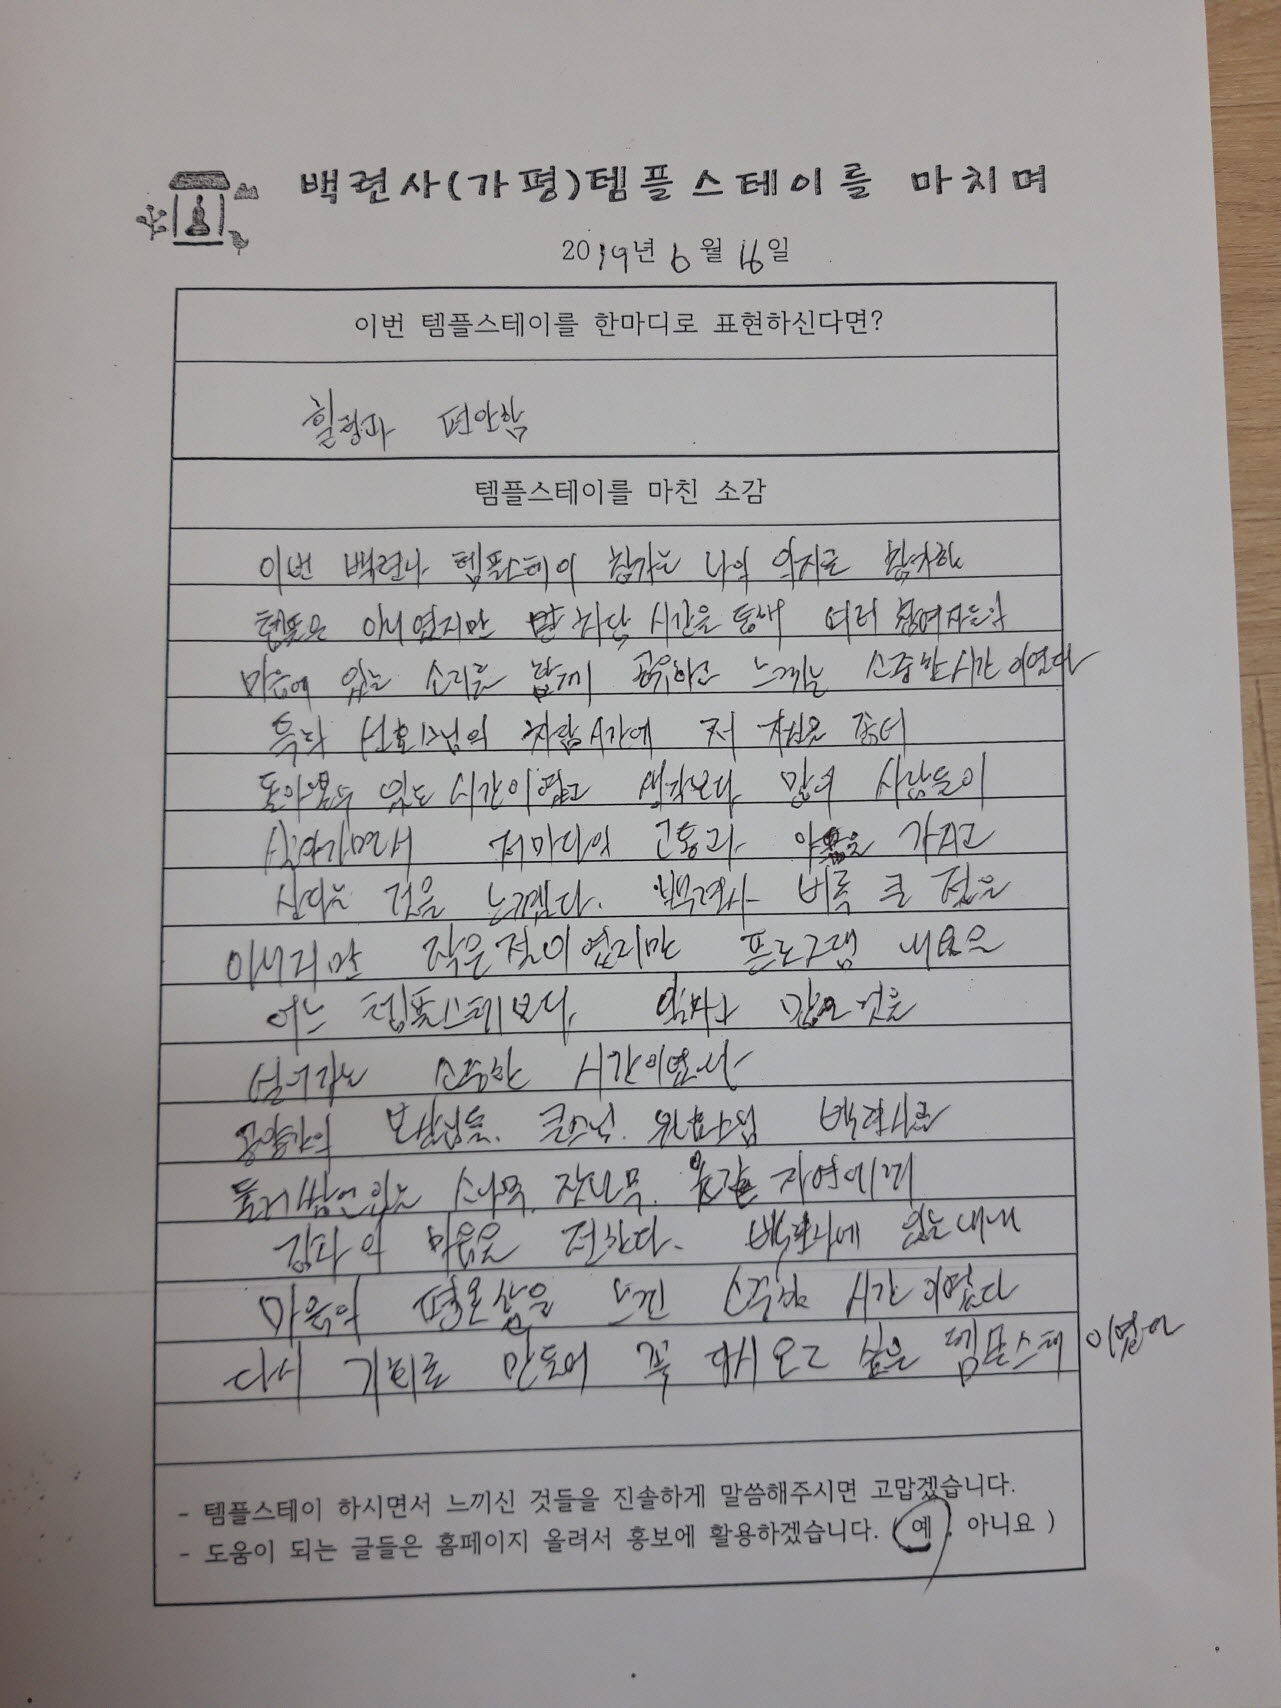 백련사(가평)템플스테이를 마치며
2019년 6월 16일
이번 템플스테이를 한마디로 표현하신다면?
힐링과 편안함
템플스테이를 마친 소감
이번 백련사 템플스테이 참가는 나의 의지로 참석한
템플은 아니였지만 차담 시간을 통해 여러 참여자들과
마음에 있는 소리를 함께 공유하고 느끼는 소중한 시간이였다
특히 선효스님의 차담시간에 저 자신을 좀더
돌아볼수 있는 시간이였고 생각보다 많이 사람들이
살아가면서 저마다의 고통과 아픔을 가지고
산다는 것을 느꼈다. 백련사 비록 큰 절은
아니지만 작은절이였지만 프로그램 내용은
어느 템플스테보다 알차고 많은것을
얻어가는 소중한 시간이였
공양간의 보살님들, 큰스님, 스님 백련사를
둘러쌓언있는 소나무, 잣나무, 자연에게
감사의 마음을 전한다. 백련사에 있는내내
마음의 평온함을 느낀 소중한 시간이였다
다시 기회로 만들어 꼭 다시오고 싶은 템플스테이였어
- 템플스테이 하시면서 느끼신 것들을 진솔하게 말씀해주시면 고맙겠습니다.
- 도움이 되는 글들은 홈페이지 올려서 홍보에 활용하겠습니다. ( 예 , 아니요 )